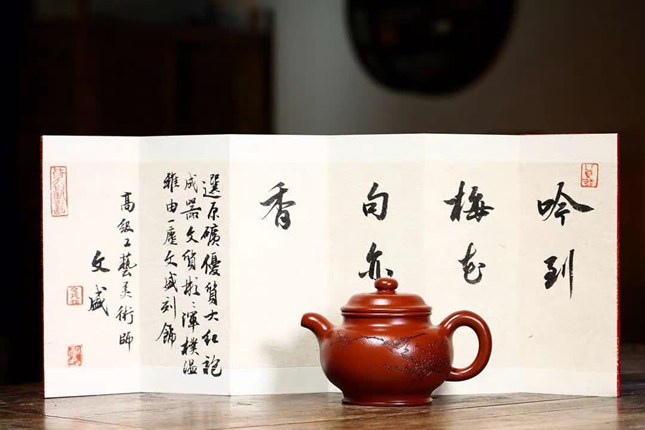 吟到
梅花
句亦
香
選原礦優質大紅袍
成器文質彬彬渾樸溫
雅由一文盛刻飾
高級工藝美術師
文盛